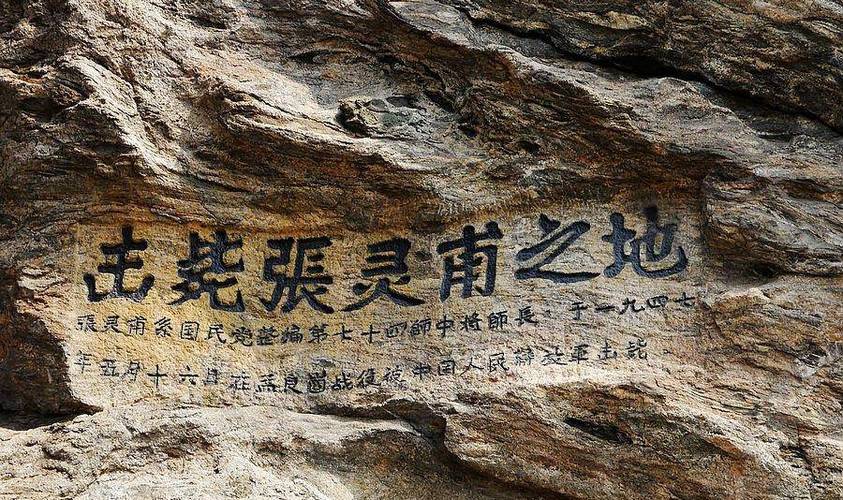 击毙張灵甫之地
張灵甫系国民党整编第七十四師中将師長，于一九四七
年五月十六日在孟良崮战役被中国人民解放軍击毙